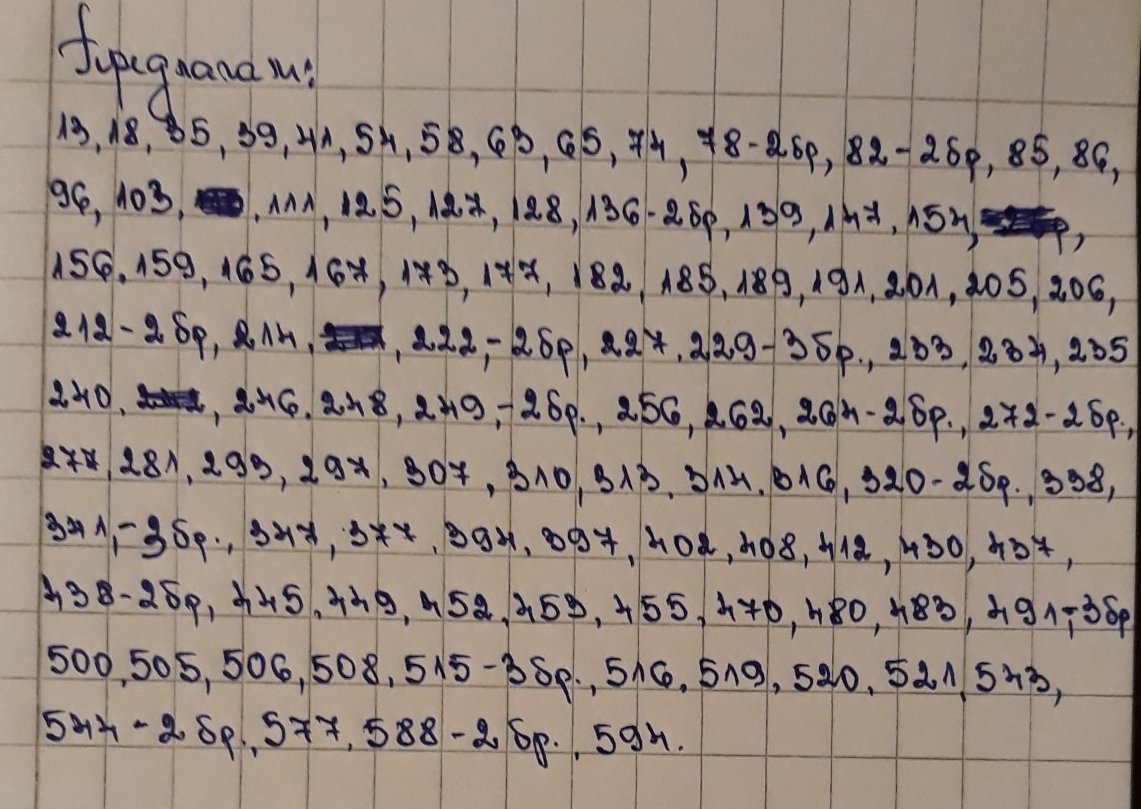 Предлагам:
13, 18, 35, 39, 41, 54, 58, 63, 65, 74, 78-2бр, 82-2бр, 85, 86,
96, 103, , 111, 125, 127, 128, 136-2бр, 139, 147, 154, ,
156, 159, 165, 167, 173, 177, 182, 185, 189, 191, 201, 205, 206,
212-2бр, 214, , 222,-2бр, 227, 229-3бр., 233, 234, 235
240, , 246, 248, 249,-2бр., 256, 262, 264-2бр., 272-2бр.,
277, 281, 293, 297, 307, 310, 313, 314, 316, 320-2бр., 338,
341,-3бр., 347, 377, 394, 397, 402, 408, 412, 430, 437,
438-2бр, 445, 449, 452, 453, 455, 470, 480, 483, 491,-3бр
500, 505, 506, 508, 515-3бр., 516, 519, 520, 521, 543,
544-2бр., 577, 588-2бр., 594.